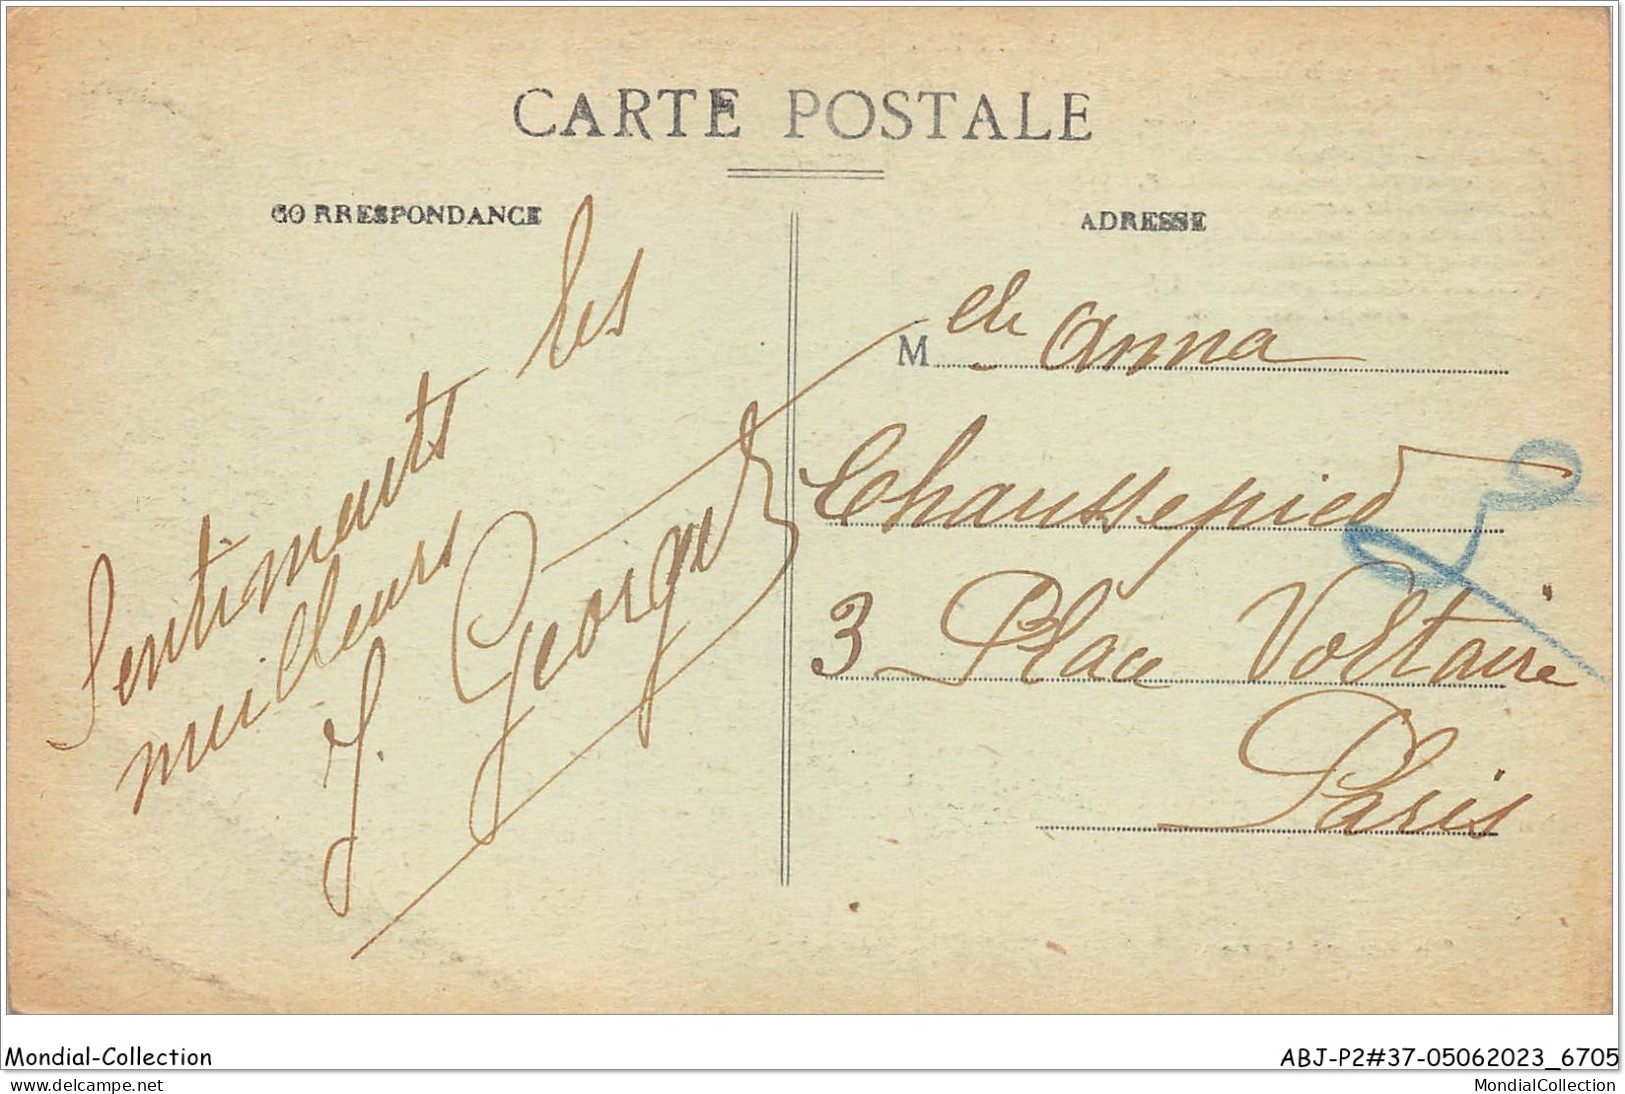 CARTE POSTALE
CORRESPONDANCE
ADRESSE
Sentiments les
meilleurs
J. Georget
M elle Anna
Chaussepied
3 Place Voltaire
Paris
Mondial-Collection
ABJ-P2#37-05062023_6705
delcampe.net
MondialCollection